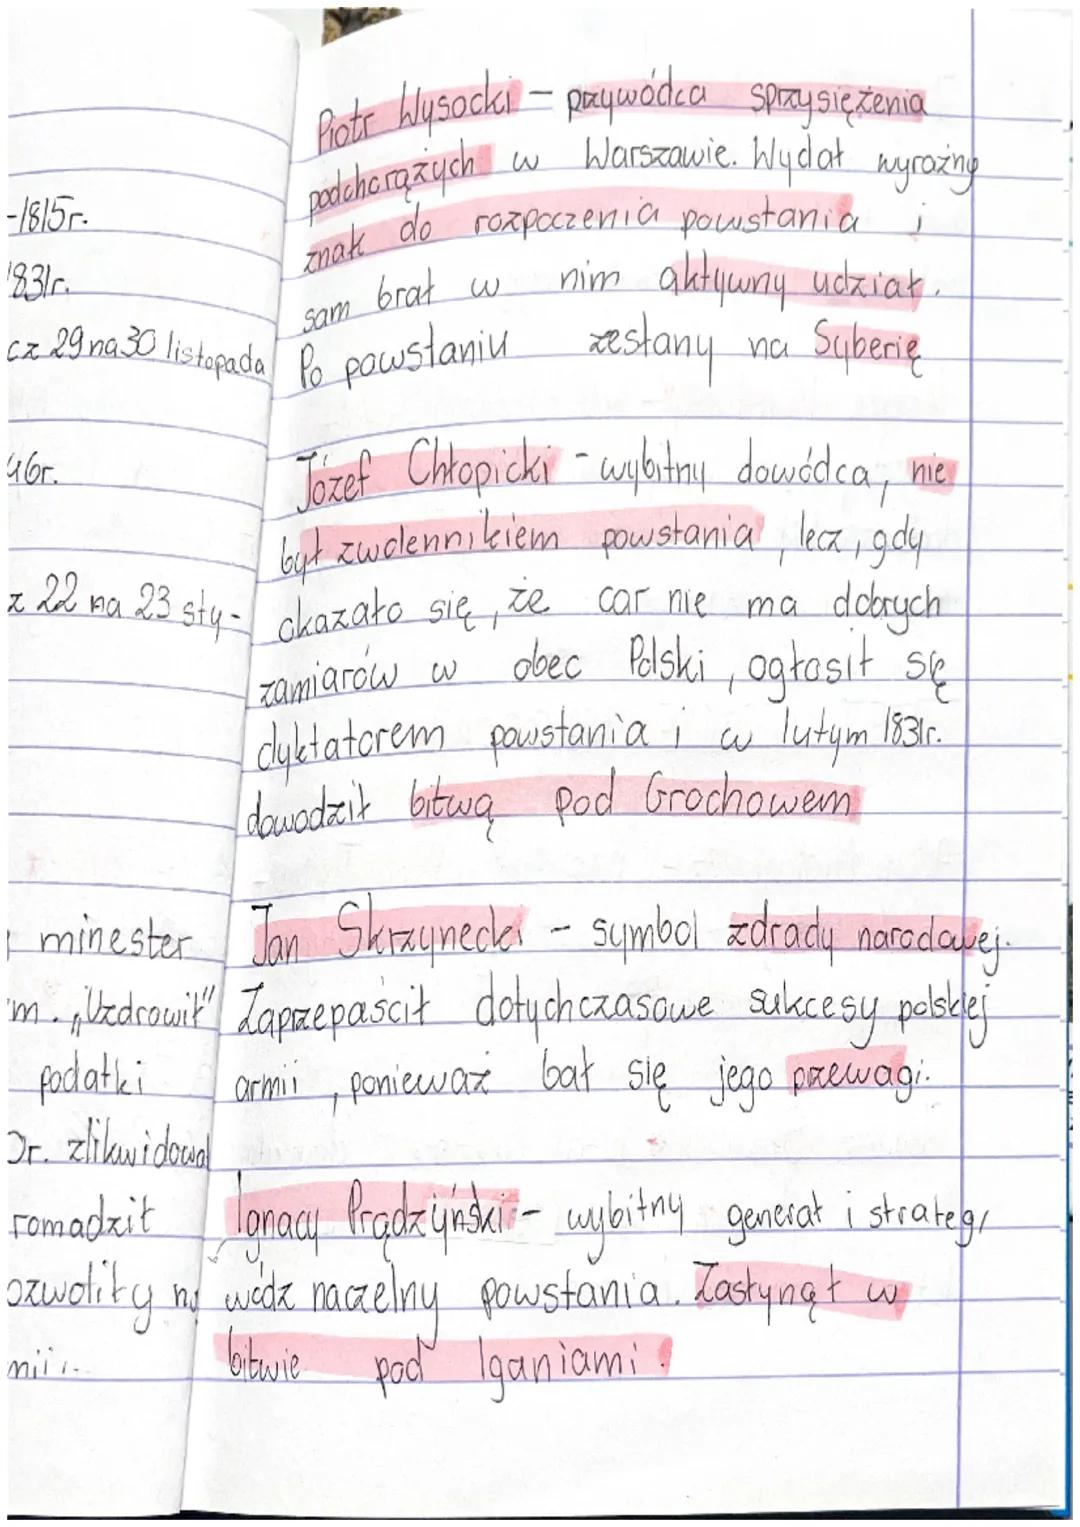 -1815r.
1831r.
cz 29 na 30 listopada
46r.
z 22 na 23 sty-
minester
m. „Uzdrowił"
podatki
Dr. zlikwidował
romadził
ozwoliły na
mii i..
Piotr Wysocki - przywódca sprzysiężenia
podchorążych w Warszawie. Wydał wyraźny
znak do rozpoczenia powstania i
sam brał w nim aktywny udział.
Po powstaniu zesłany na Syberię
Józef Chłopicki - wybitny dowódca, nie
był zwolennikiem powstania, lecz, gdy
okazało się, że car nie ma dobrych
zamiarów w obec Polski, ogłosił się
dyktatorem powstania i w lutym 1831r.
dowodził bitwą pod Grochowem
Jan Skrzynecki - symbol zdrady narodowej.
Zaprzepaścił dotychczasowe sukcesy polskiej
armii, ponieważ bał się jego przewagi.
Ignacy Prądzyński - wybitny generał i strateg,
wódz naczelny powstania. Zasłynął w
bitwie pod Iganiami.